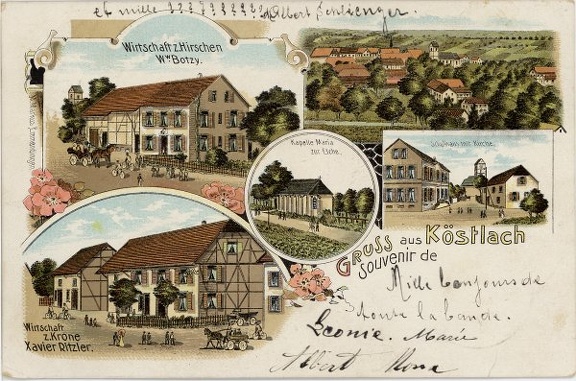 et mille
Albert
Wirtschaft z. Hirschen
Wwe Botzy.
Kapelle Maria
zur Eiche.
Schulhaus mit Kirche.
Gruss aus Köstlach
Souvenir de
Mille bonjours de
toute la bande.
Leonie. Marie
Albert Rosa
Wirtschaft
z. Krone
Xavier Ritzler.